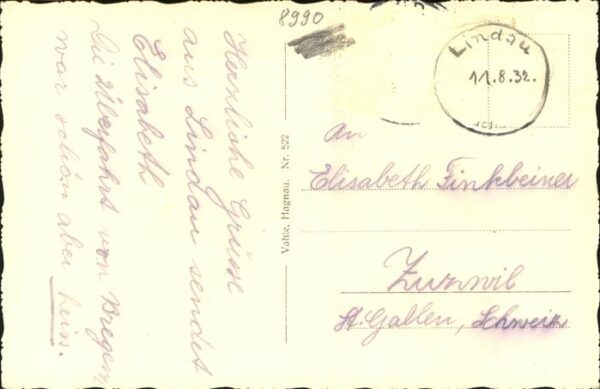 8990
Lindau
11.8.32.
Herzliche Grüsse
aus Lindau sendet
Elisabeth
Die Überfahrt von Bregenz
war schön aber heiss.
Vahle, Hagnau. Nr. 522
An
Elisabeth Finkbeiner
Zuzwil
St. Gallen, Schweiz